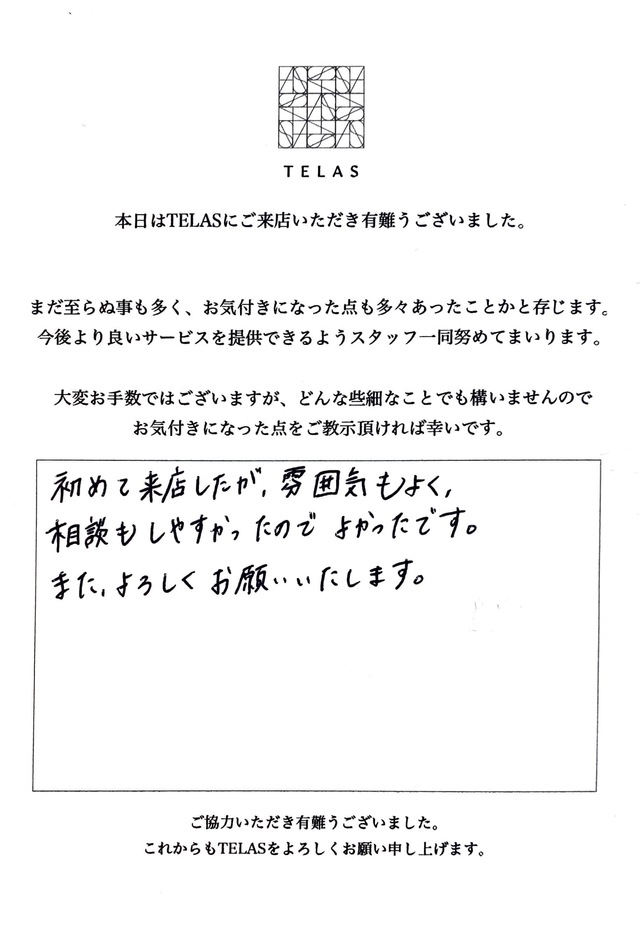 TELAS
本日はTELASにご来店いただき有難うございました。
まだ至らぬ事も多く、お気付きになった点も多々あったことかと存じます。
今後より良いサービスを提供できるようスタッフ一同努めてまいります。
大変お手数ではございますが、どんな些細なことでも構いませんので
お気付きになった点をご教示頂ければ幸いです。
初めて来店したが、雰囲気もよく、
相談もしやすかったのでよかったです。
また、よろしくお願いいたします。
ご協力いただき有難うございました。
これからもTELASをよろしくお願い申し上げます。